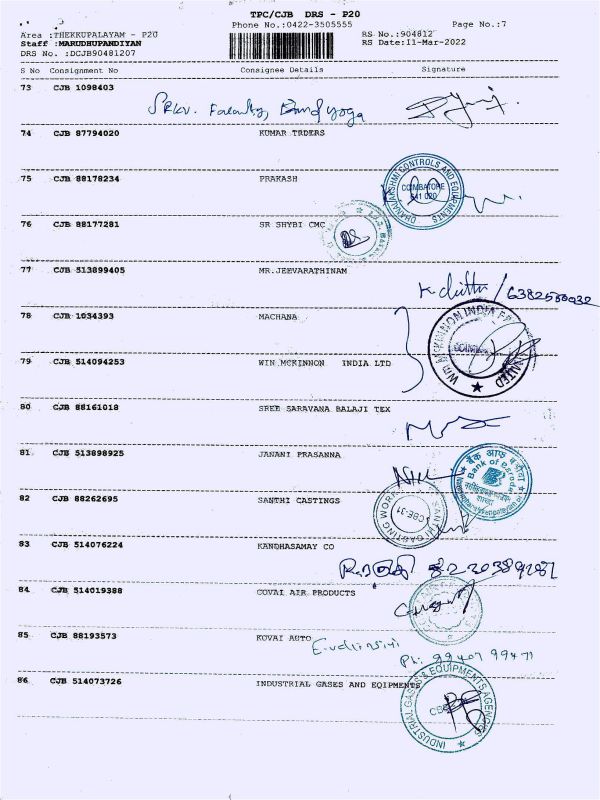 TPC/CJB DRS - P20
Phone No.:0422-3505555 Page No.:7
Area :THEKKUPALAYAM - P20 RS No.:904812
Staff :MARUDHUPANDIYAN RS Date:11-Mar-2022
DRS No. :DCJB90481207
S No Consignment No Consignee Details Signature
73 CJB 1098403
74 CJB 87794020 KUMAR TRDERS
75 CJB 88178234 PRAKASH
DHANALAKSHMI CONTROLS AND EQUIPMENTS
COIMBATORE
641 020
76 CJB 88177281 SR SHYBI CMC
77 CJB 513899405 MR.JEEVARATHINAM
78 CJB 1034393 MACHANA
79 CJB 514094253 WIN MCKINNON INDIA LTD
80 CJB 88161018 SREE SARAVANA BALAJI TEX
81 CJB 513898925 JANANI PRASANNA
बैंक ऑफ बड़ौदा
Bank of Baroda
82 CJB 88262695 SANTHI CASTINGS
CBE-31
83 CJB 514076224 KANDHASAMY CO
84 CJB 514019388 COVAI AIR PRODUCTS
85 CJB 88193573 KOVAI AUTO
Ph: 99407 99471
86 CJB 514073726 INDUSTRIAL GASES AND EQIPMENTS
INDUSTRIAL GASES & EQUIPMENTS AGENCIES